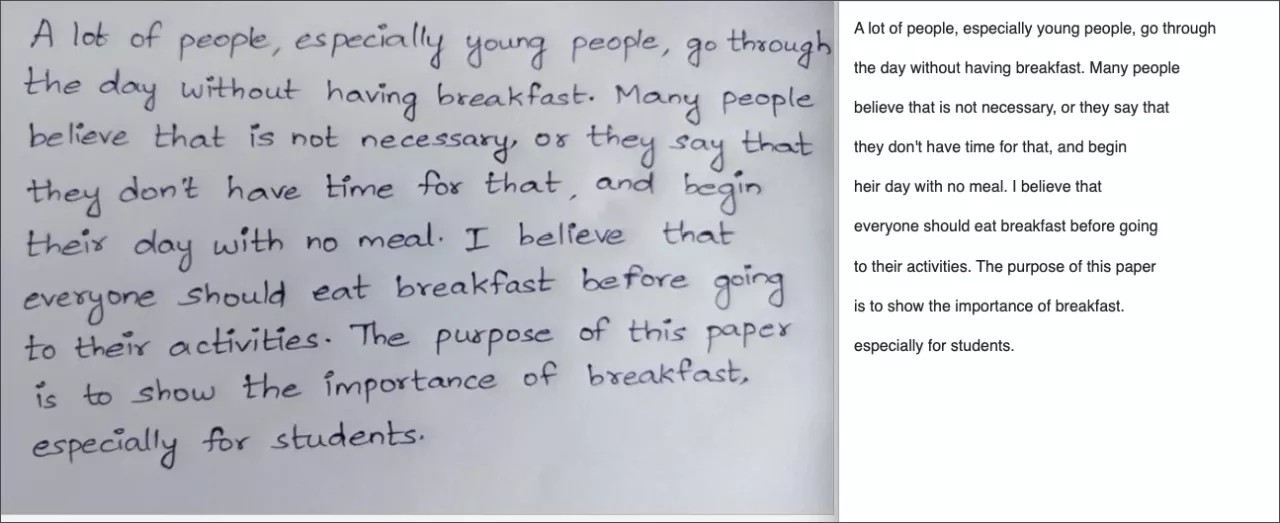 A lot of people, especially young people, go through
the day without having breakfast. Many people
believe that is not necessary, or they say that
they don't have time for that, and begin
their day with no meal. I believe that
everyone should eat breakfast before going
to their activities. The purpose of this paper
is to show the importance of breakfast,
especially for students.
A lot of people, especially young people, go through
the day without having breakfast. Many people
believe that is not necessary, or they say that
they don't have time for that, and begin
heir day with no meal. I believe that
everyone should eat breakfast before going
to their activities. The purpose of this paper
is to show the importance of breakfast.
especially for students.